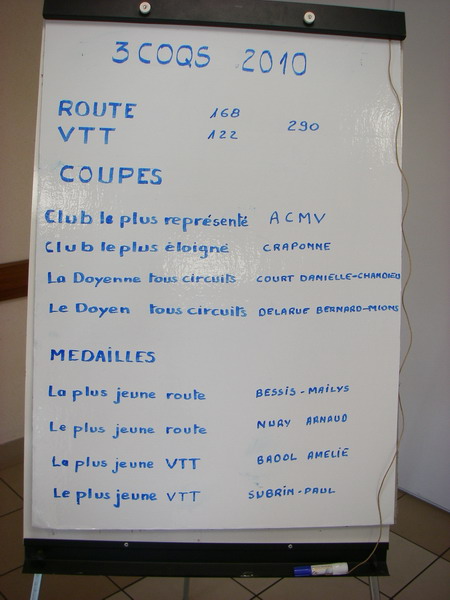 3 COQS 2010
ROUTE 168
VTT 122 290
COUPES
Club le plus représenté ACMV
Club le plus éloigné CRAPONNE
La Doyenne tous circuits COURT DANIELLE-CHANDIEU
Le Doyen tous circuits DELARUE BERNARD-MIONS
MEDAILLES
La plus jeune route BESSIS-MAILYS
Le plus jeune route NURY ARNAUD
La plus jeune VTT BADOL AMELIE
Le plus jeune VTT SUBRIN-PAUL